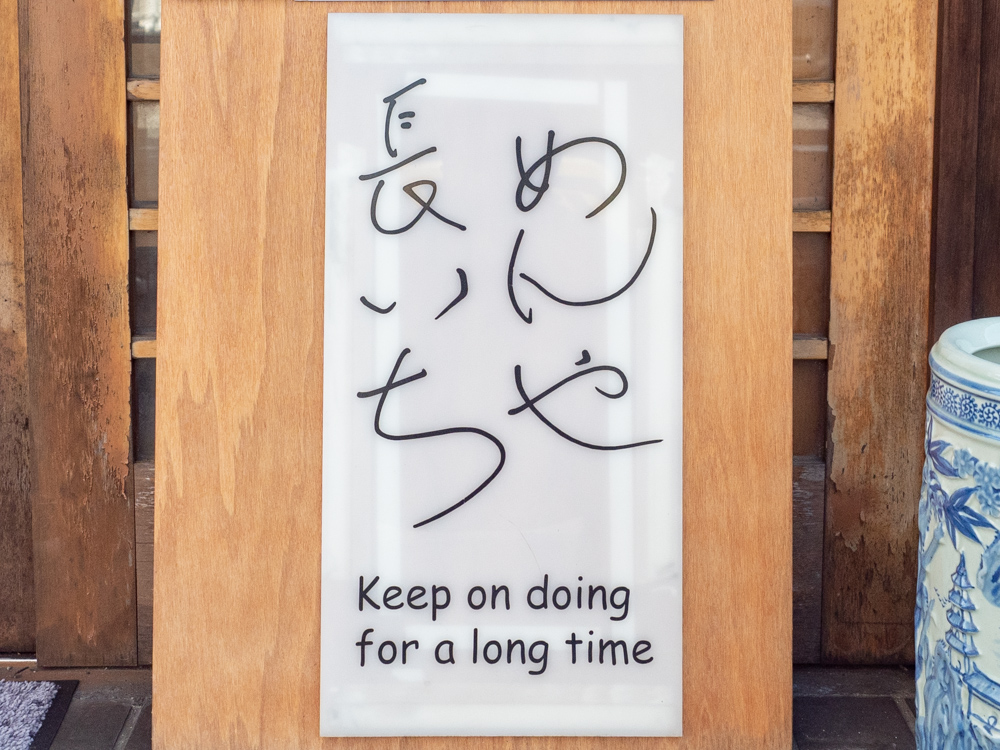 めんや
長いち
Keep on doing
for a long time